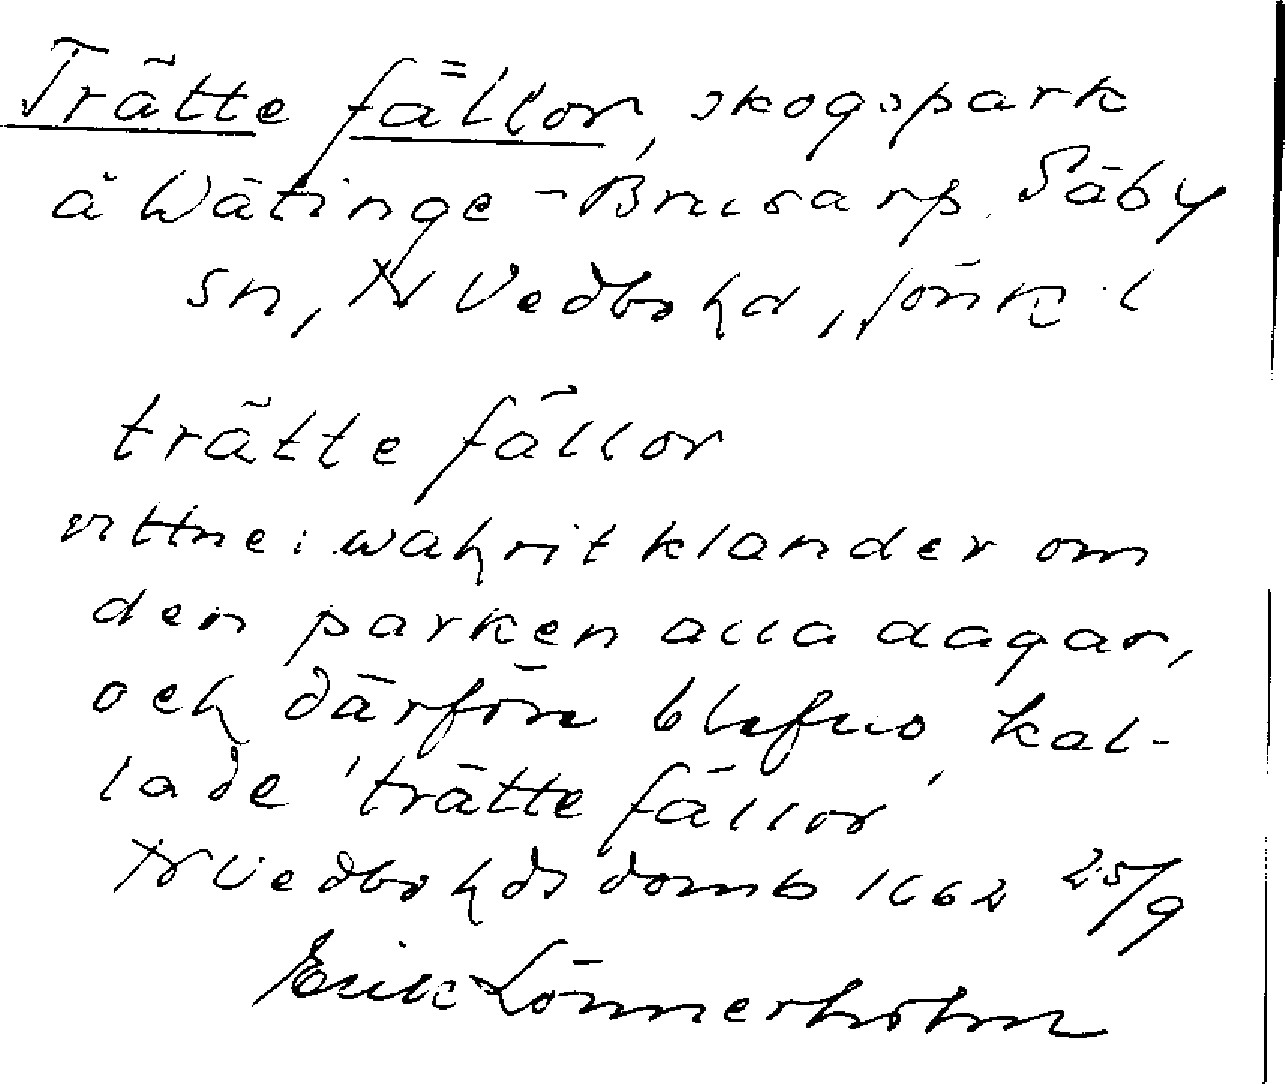 Trätte fällor, skogspark
å Wätinge - Brusarp, Säby
sn, N Vedbo hd, Jönk. l
trätte fällor
vittne: wahrit klander om
den parken alla dagar,
och därföre blefuo kal-
lade 'trätte fällor'
N Vedbo hds domb 1662 25/9
Erik Lönnerholm